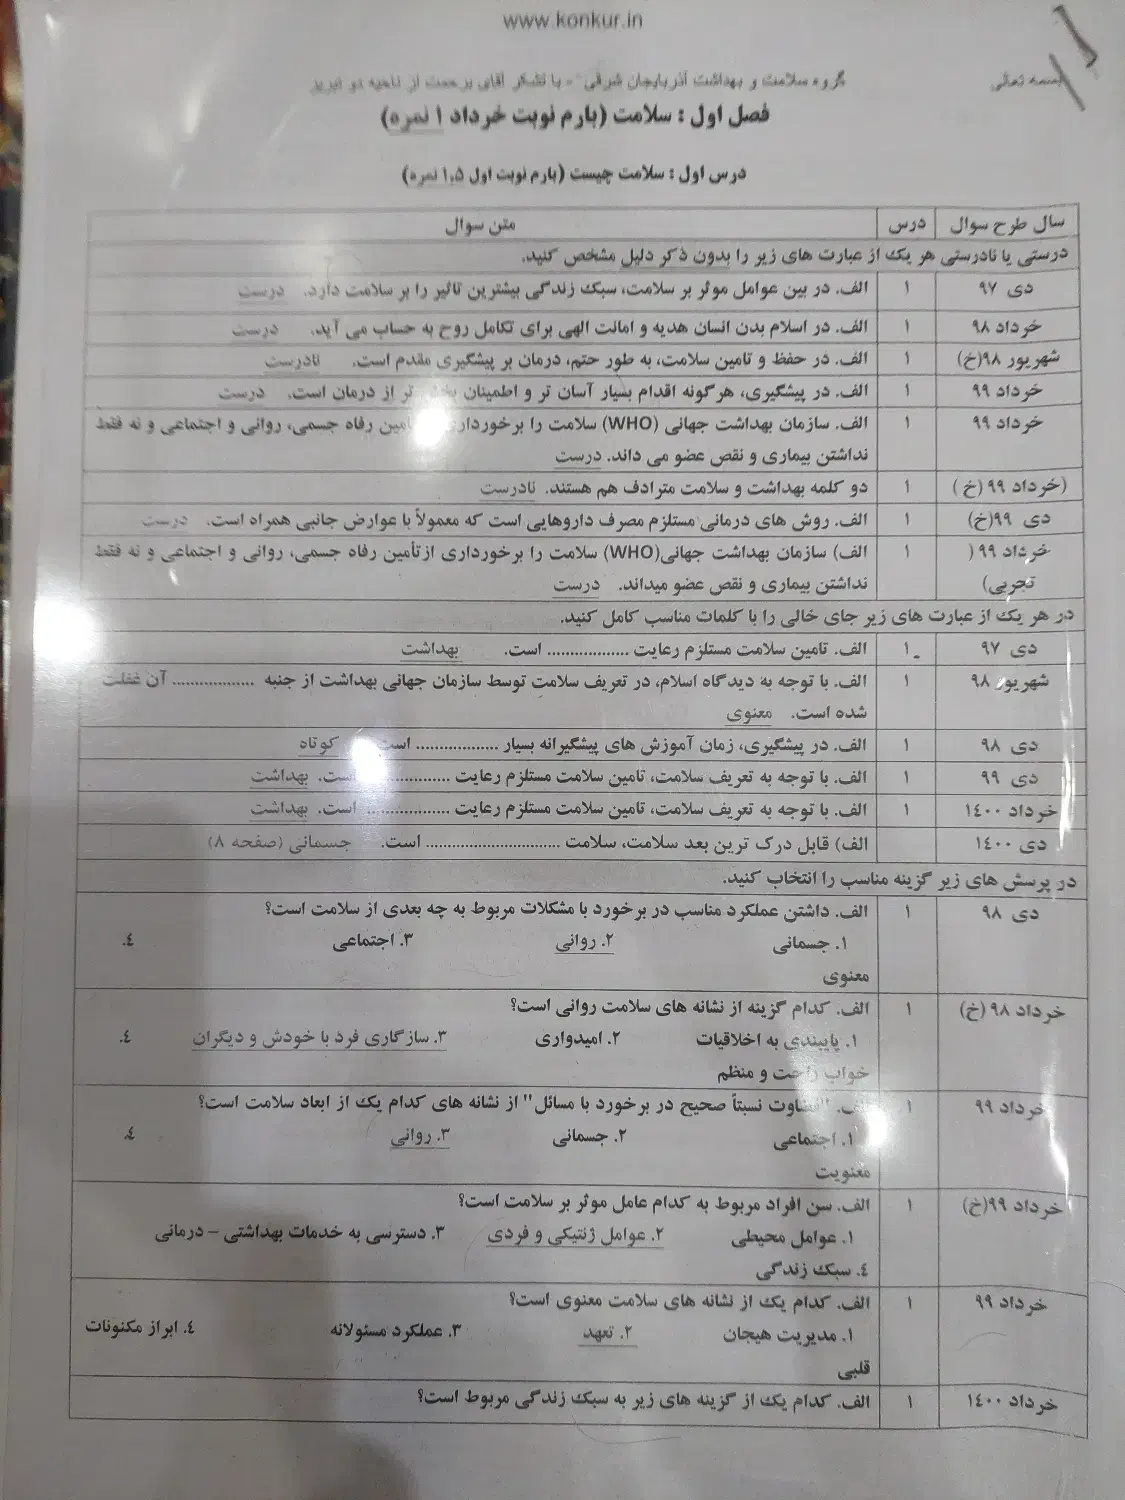 www.konkur.in
بسمه تعالی
گروه سلامت و بهداشت آذربایجان شرقی - با تشکر آقای برحمت از ناحیه دو تبریز
فصل اول : سلامت (بارم نوبت خرداد ۱ نمره)
درس اول : سلامت چیست (بارم نوبت اول ۱,۵ نمره)
سال طرح سوال درس متن سوال
درستی یا نادرستی هر یک از عبارت های زیر را بدون ذکر دلیل مشخص کنید.
دی ۹۷ ۱ الف. در بین عوامل موثر بر سلامت، سبک زندگی بیشترین تاثیر را بر سلامت دارد. درست
خرداد ۹۸ ۱ الف. در اسلام بدن انسان هدیه و امانت الهی برای تکامل روح به حساب می آید. درست
شهریور ۹۸(خ) ۱ الف. در حفظ و تامین سلامت، به طور حتم، درمان بر پیشگیری مقدم است. نادرست
خرداد ۹۹ ۱ الف. در پیشگیری، هر گونه اقدام بسیار آسان تر و اطمینان بخش تر از درمان است. درست
خرداد ۹۹ ۱ الف. سازمان بهداشت جهانی (WHO) سلامت را برخورداری تامین رفاه جسمی، روانی و اجتماعی و نه فقط
نداشتن بیماری و نقص عضو می داند. درست
(خرداد ۹۹ (خ ) ۱ دو کلمه بهداشت و سلامت مترادف هم هستند. نادرست
دی ۹۹(خ) ۱ الف. روش های درمانی مستلزم مصرف داروهایی است که معمولاً با عوارض جانبی همراه است. درست
خرداد ۹۹ ( ۱ الف) سازمان بهداشت جهانی(WHO) سلامت را برخورداری ازتأمین رفاه جسمی، روانی و اجتماعی و نه فقط
تجربی) نداشتن بیماری و نقص عضو میداند. درست
در هر یک از عبارت های زیر جای خالی را با کلمات مناسب کامل کنید.
دی ۹۷ ۱ الف. تامین سلامت مستلزم رعایت ................. است. بهداشت
شهریور ۹۸ ۱ الف. با توجه به دیدگاه اسلام، در تعریف سلامت توسط سازمان جهانی بهداشت از جنبه ................. آن غفلت
شده است. معنوی
دی ۹۸ ۱ الف. در پیشگیری، زمان آموزش های پیشگیرانه بسیار ................. است. کوتاه
دی ۹۹ ۱ الف. با توجه به تعریف سلامت، تامین سلامت مستلزم رعایت ................. است. بهداشت
خرداد ۱٤۰۰ ۱ الف. با توجه به تعریف سلامت، تامین سلامت مستلزم رعایت ................. است. بهداشت
دی ۱٤۰۰ الف) قابل درک ترین بعد سلامت، سلامت ............................ است. جسمانی (صفحه ۸)
در پرسش های زیر گزینه مناسب را انتخاب کنید.
دی ۹۸ ۱ الف. داشتن عملکرد مناسب در برخورد با مشکلات مربوط به چه بعدی از سلامت است؟
۱. جسمانی ۲. روانی ۳. اجتماعی ٤.
معنوی
خرداد ۹۸ (خ) ۱ الف. کدام گزینه از نشانه های سلامت روانی است؟
۱. پایبندی به اخلاقیات ۲. امیدواری ۳. سازگاری فرد با خودش و دیگران ٤.
خواب راحت و منظم
خرداد ۹۹ ۱ الف. "قضاوت نسبتاً صحیح در برخورد با مسائل" از نشانه های کدام یک از ابعاد سلامت است؟
۱. اجتماعی ۲. جسمانی ۳. روانی ٤.
معنویت
خرداد ۹۹(خ) ۱ الف. سن افراد مربوط به کدام عامل موثر بر سلامت است؟
۱. عوامل محیطی ۲. عوامل ژنتیکی و فردی ۳. دسترسی به خدمات بهداشتی – درمانی
٤. سبک زندگی
خرداد ۹۹ ۱ الف. کدام یک از نشانه های سلامت معنوی است؟
۱. مدیریت هیجان ۲. تعهد ۳. عملکرد مسئولانه ٤. ابراز مکنونات
قلبی
خرداد ۱٤۰۰ ۱ الف. کدام یک از گزینه های زیر به سبک زندگی مربوط است؟